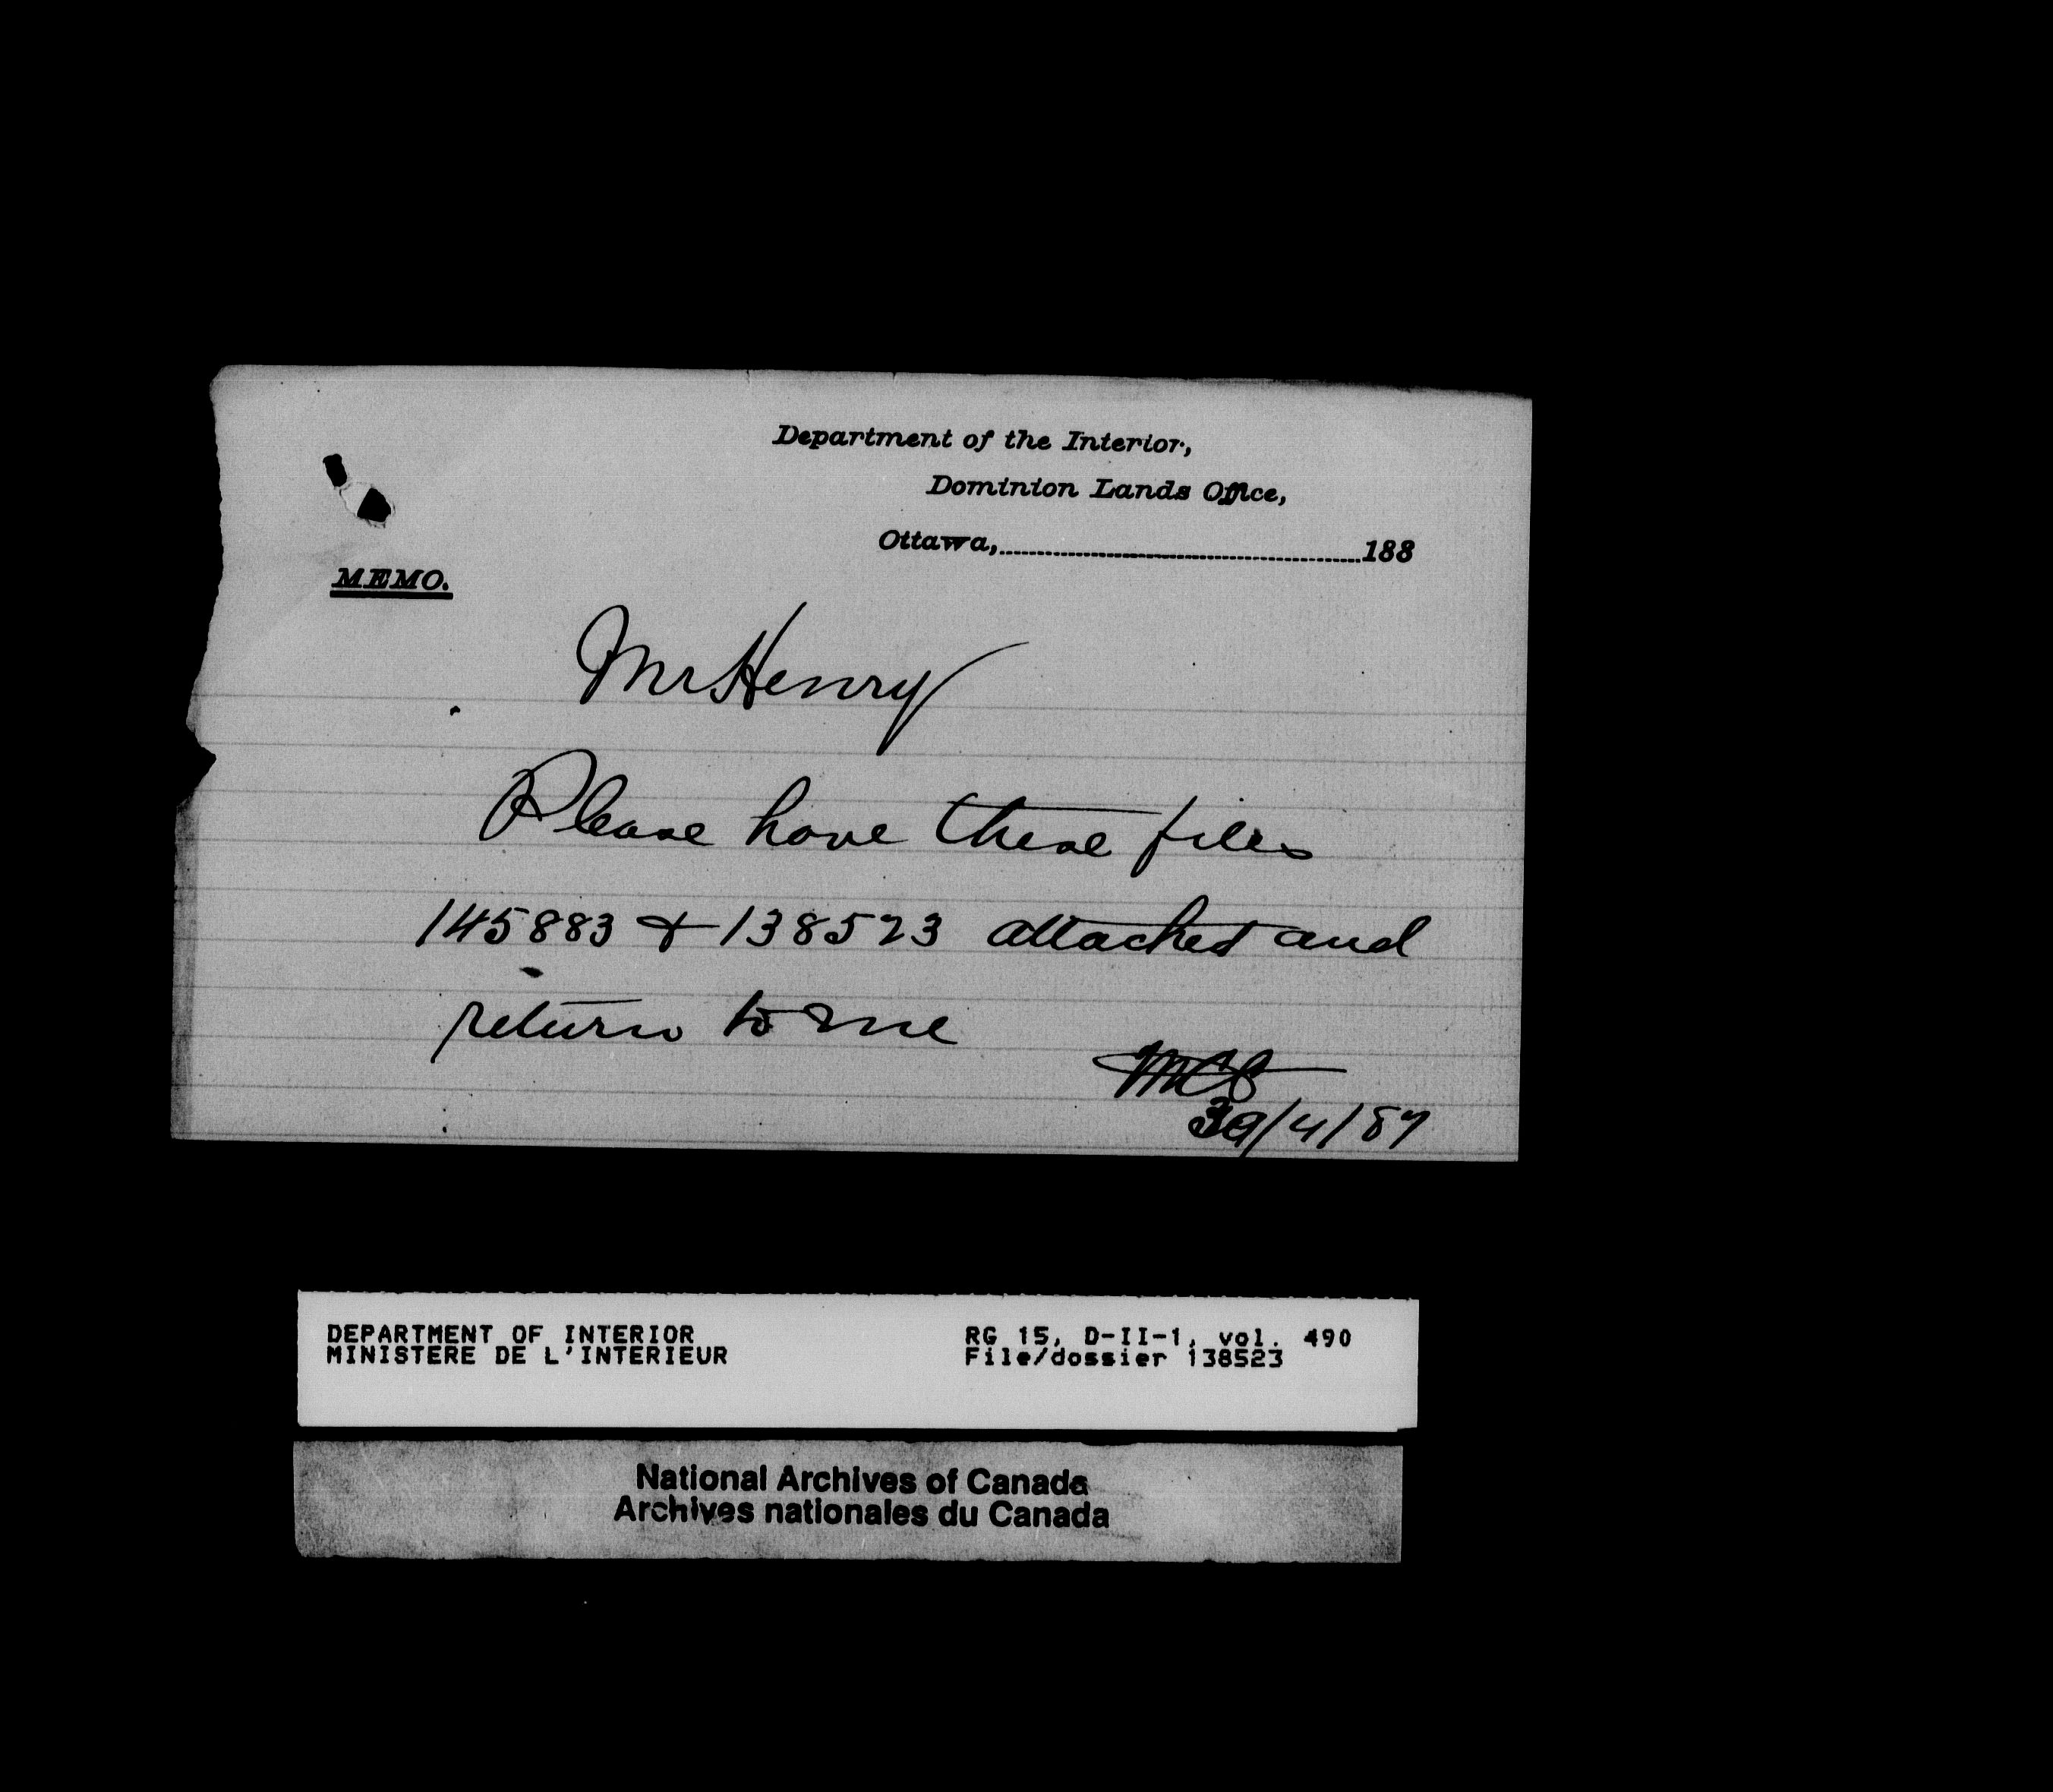 Department of the Interior,
Dominion Lands Office,
Ottawa,..........188
MEMO.
Mr Henry
Please have these files
145883 & 138523 attached and
return to me
/4/87
DEPARTMENT OF INTERIOR
MINISTERE DE L'INTERIEUR
RG 15, D-II-1, vol. 490
File/dossier 138523
National Archives of Canada
Archives nationales du Canada